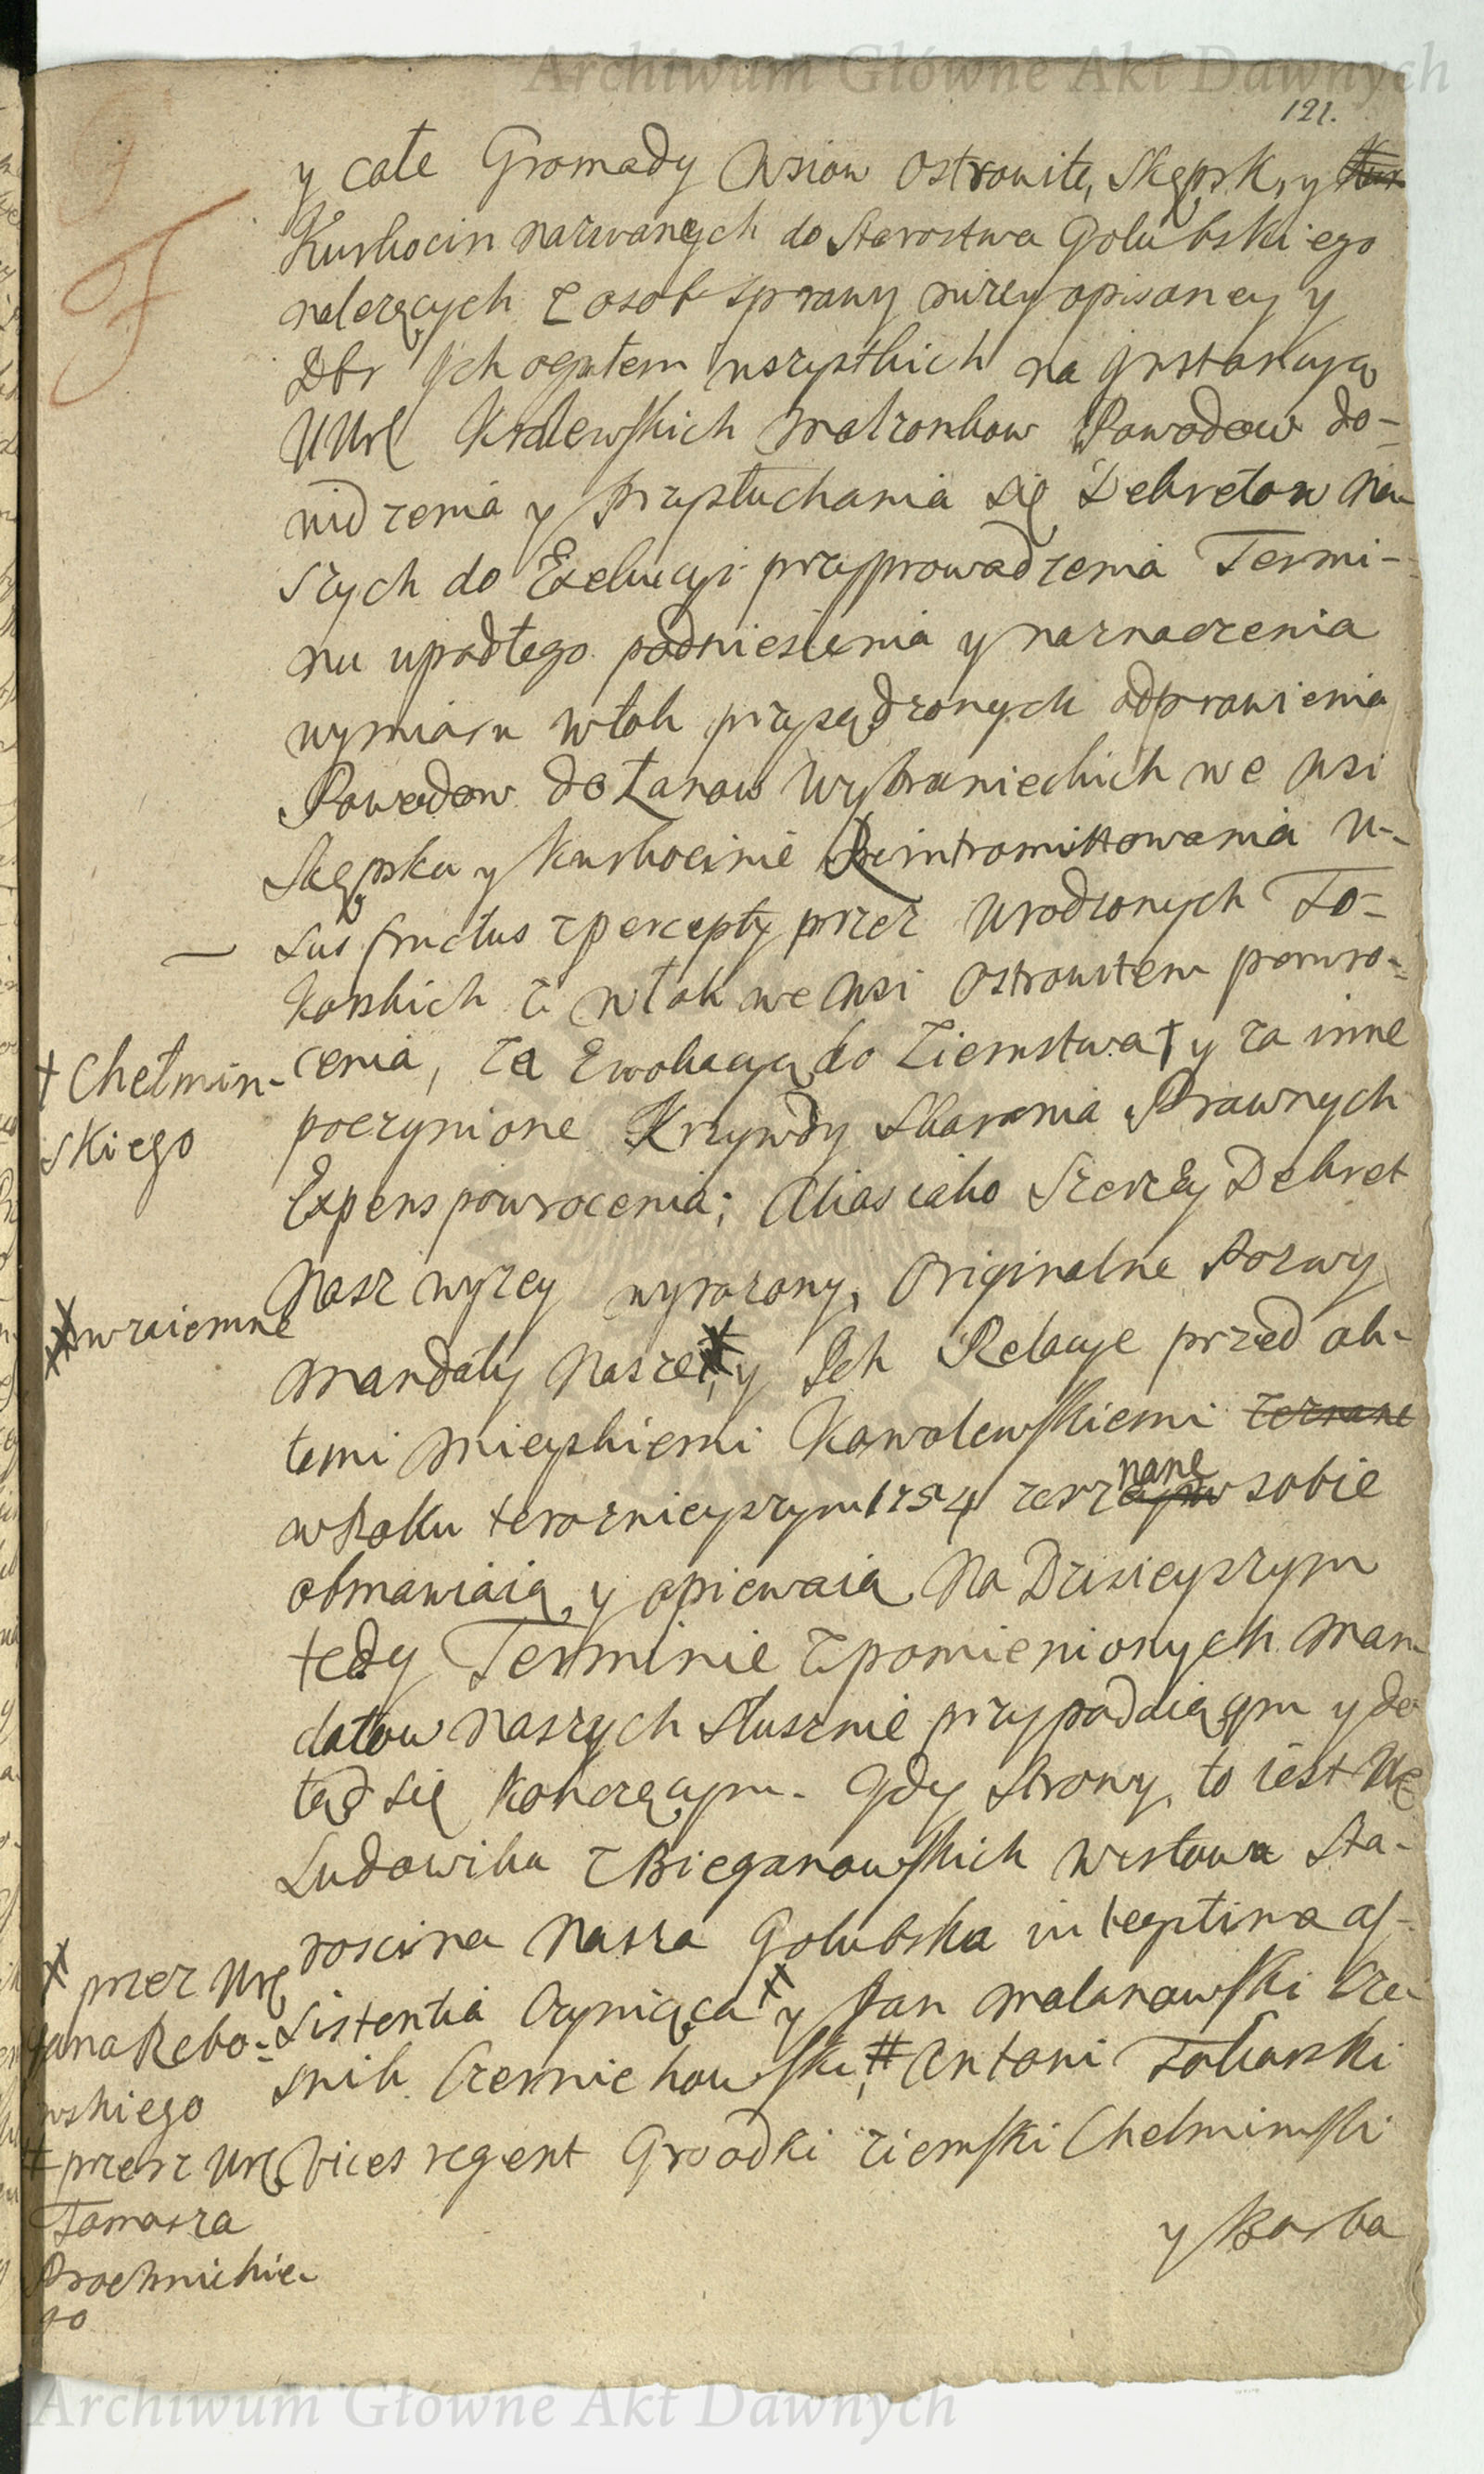 Archiwum Główne Akt Dawnych
121.
y całe Gromady Wsiow Ostrowite, Skępsk, y
Kurkocin nazwanych do Starostwa Golubskiego
nalezących z osob sprawy nizey opisaney y
Dbr Ych ogułem wszystkich na Jnstancyą
UUrl Kralewskich Małzonkow Powodow do-
widzenia y Przysłuchania się Dekretow Na-
szych do Exekucyi przyprowadzenia Termi-
nu upadłego podniesienia y naznaczenia
wymiaru włok przysądzonych odprawienia
Powodow do Łanow Wybranieckich we wsi
Skępsku y Kurkocinie Reintromittowania U-
sus fructus zpercepty przez Urodzonych To-
karskich z włok we wsi Ostrowitem powro-
cenia, za Ewokacyą do Ziemstwa † y za inne
† Chełmin-
skiego
poczynione Krzywdy Skarania Prawnych
Expens powrocenia; Alias iako Szerzey Dekret
Nasz wyzey wyrazony, Originalne Pozwy
wzaiemne
Mandaty Nasze y Ich Relacye przed ak-
tami Mieyskiemi Kowalewskiemi zeznane
w Roku teraznieyszym 1754 zeznane sobie
obmawiaią, y opiewaią Na Dzisieyszym
tedy Terminie zpomienionych Man
datow Naszych Słusznie przypadaiącym y do
tąd się kończącym. Gdy Strony, to iest
Ludowika z Bieganowskich Wesłowa Sta-
roscina Nasza Golubska in legitima as-
sistentia Czyniąca x y Jan Malanowski Cze-
x przez Url
Jana Rebo-
wskiego
snik Czerniechowski, # Antoni Tokarski
# przez Url
Tomasza
Prochnickie-
go
Vices regent Grodzki ziemski Chelminski
y Barba
Archiwum Główne Akt Dawnych